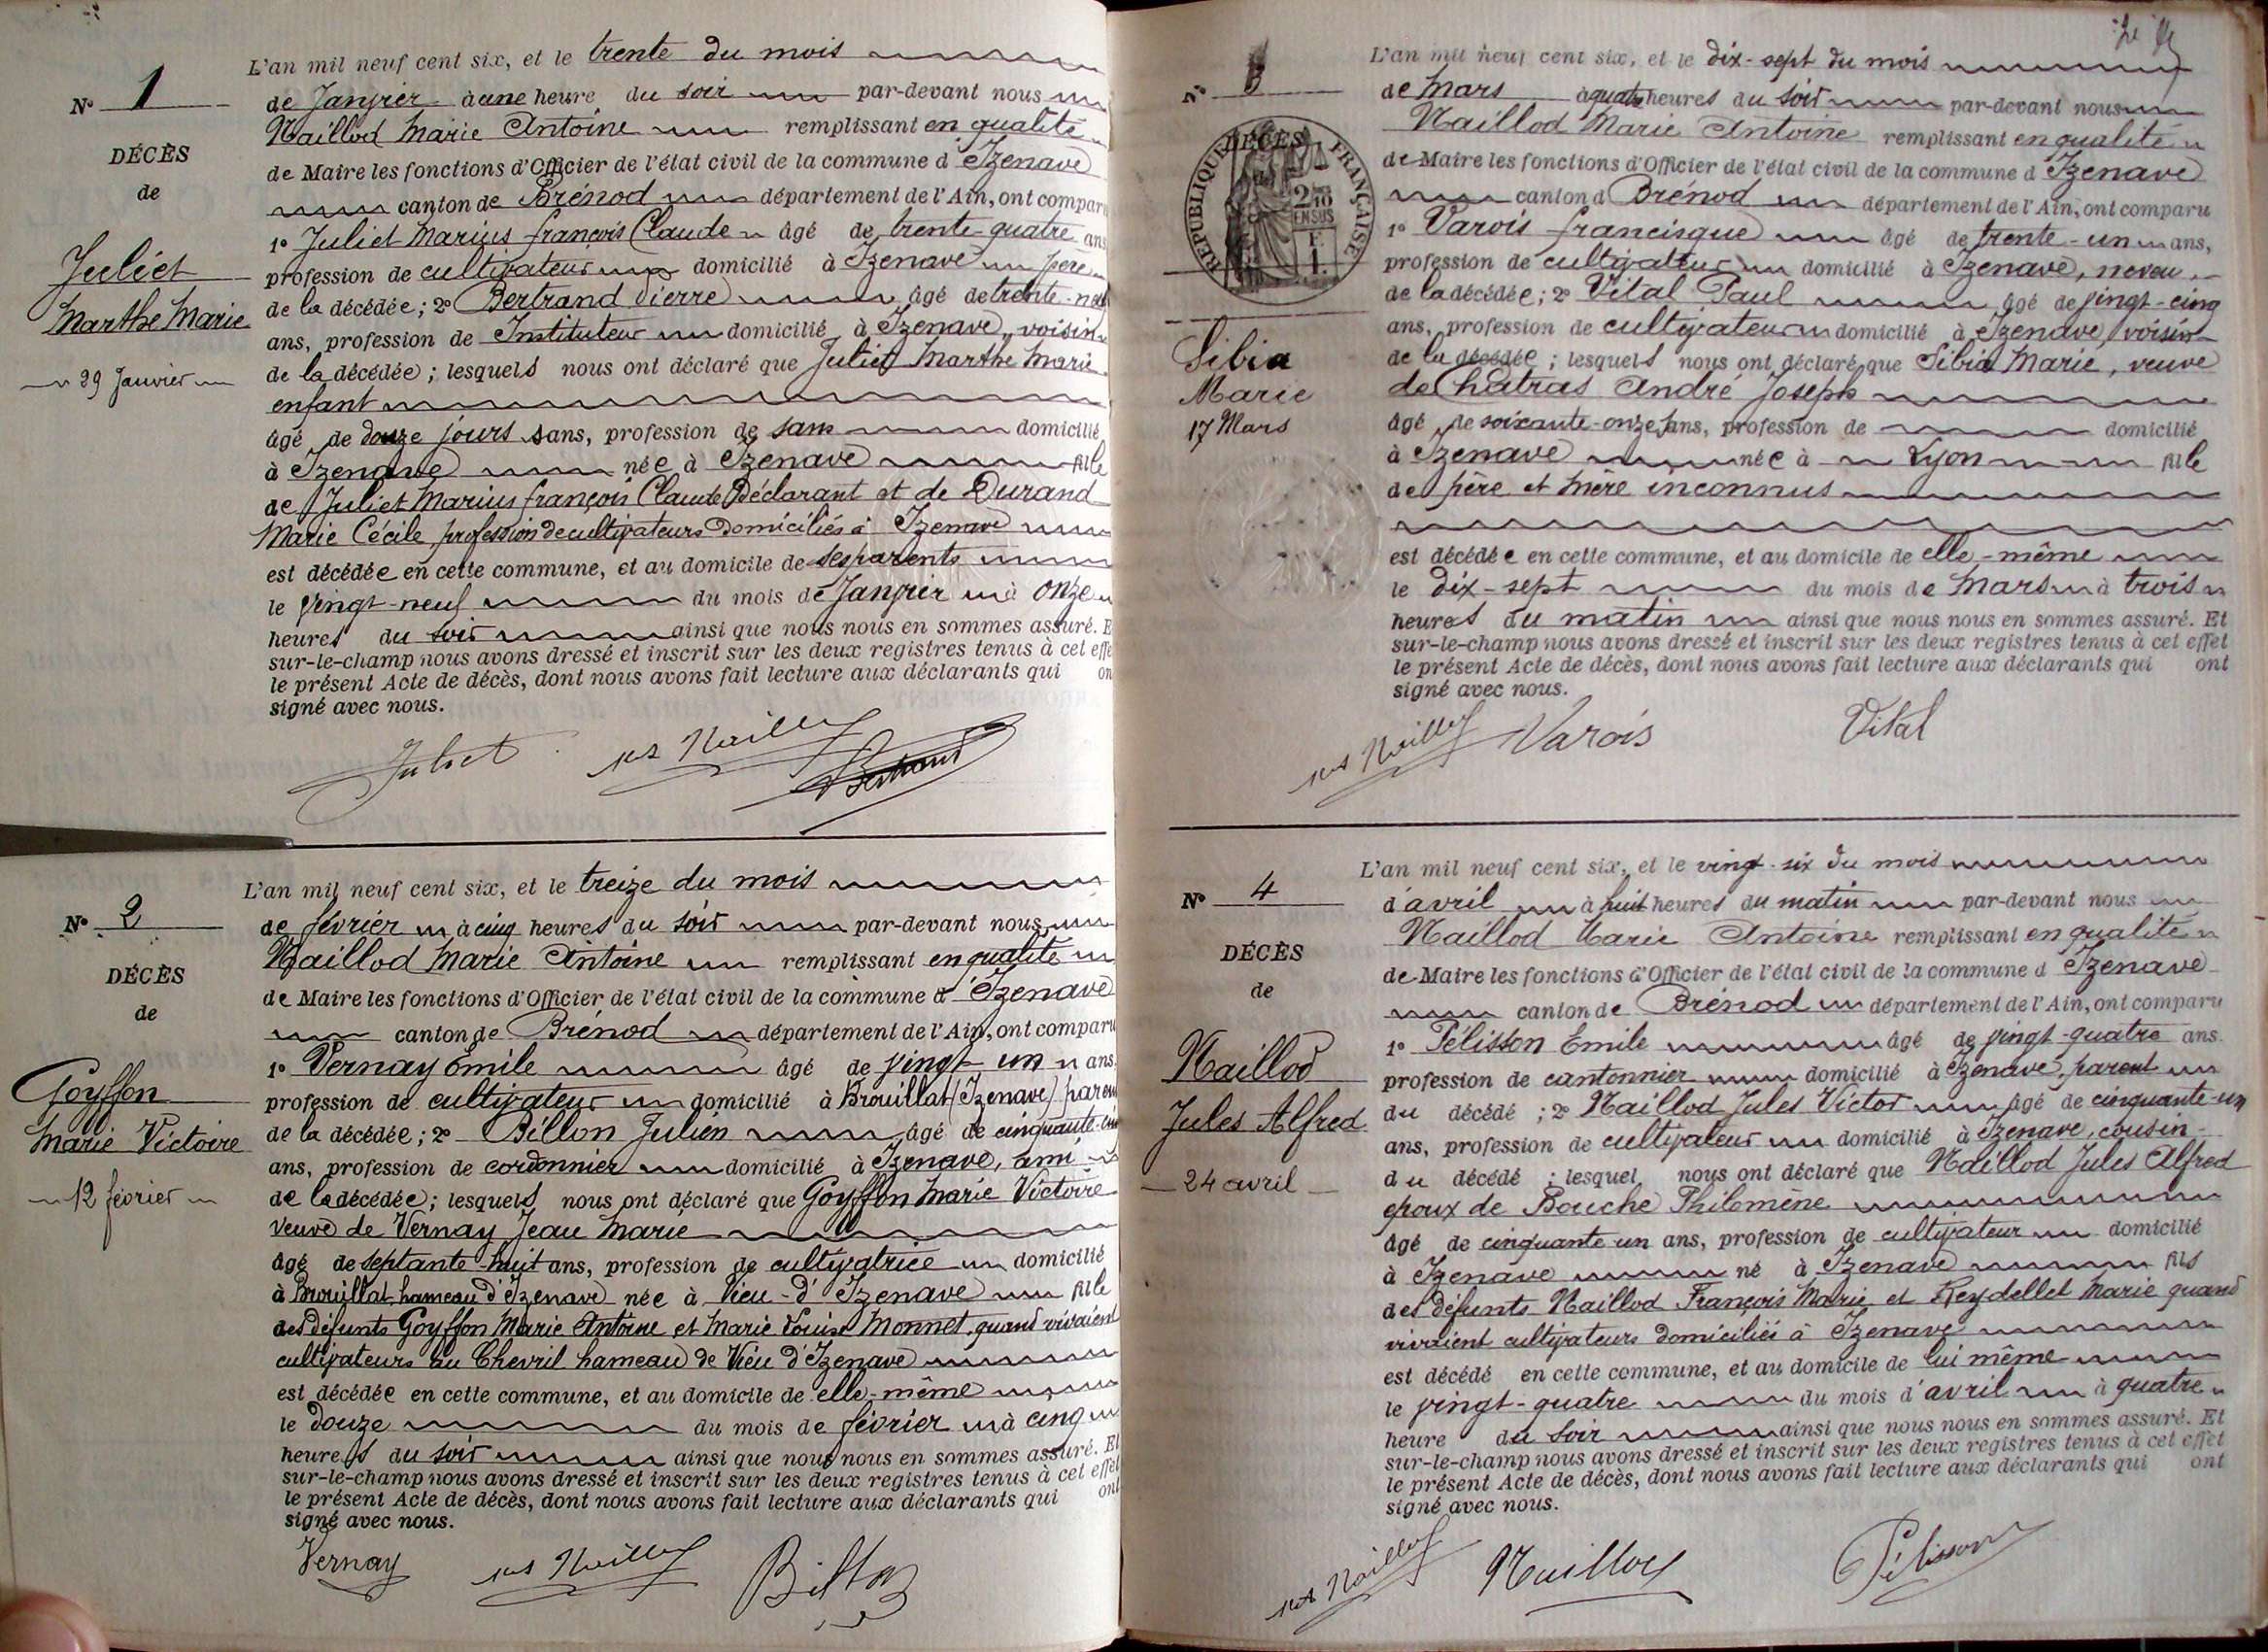 N° 1
DÉCÈS
de
Juliet
Marthe Marie
29 Janvier
L'an mil neuf cent six, et le trente du mois
de Janvier à une heure du soir par-devant nous
Maillod Marie Antoine remplissant en qualité
de Maire les fonctions d'Officier de l'état civil de la commune d'Izenave
canton de Brénod département de l'Ain, ont comparu
1° Juliet Marius françois Claude âgé de trente-quatre ans
profession de cultivateur domicilié à Izenave père
de la décédée; 2° Bertrand Pierre âgé de trente-neuf
ans, profession de Instituteur domicilié à Izenave, voisin
de la décédée; lesquels nous ont déclaré que Juliet Marthe Marie
enfant
âgé de douze jours sans, profession de sans domicilié
à Izenave née à Izenave fille
de Juliet Marius françois Claude Déclarant et de Durand
Marie Cécile, profession de cultivateurs domiciliés à Izenave
est décédée en cette commune, et au domicile de ses parents
le vingt-neuf du mois de Janvier à onze
heures du soir ainsi que nous nous en sommes assuré. E
sur-le-champ nous avons dressé et inscrit sur les deux registres tenus à cet effe
le présent Acte de décès, dont nous avons fait lecture aux déclarants qui on
signé avec nous.
Juliet Maillod Bertrand
N° 2
DÉCÈS
de
Goyffon
Marie Victoire
12 février
L'an mil neuf cent six, et le treize du mois
de février à cinq heures du soir par-devant nous
Maillod Marie Antoine remplissant en qualité
de Maire les fonctions d'Officier de l'état civil de la commune d'Izenave
canton de Brénod département de l'Ain, ont comparu
1° Vernay Emile âgé de vingt un ans
profession de cultivateur domicilié à Brouillat (Izenave) paren
de la décédée; 2° Billon Julien âgé de cinquante-cin
ans, profession de cordonnier domicilié à Izenave, ami
de la décédée; lesquels nous ont déclaré que Goyffon Marie Victoire
veuve de Vernay Jean Marie
âgé de septante-huit ans, profession de cultivatrice domicilié
à Brouillat hameau d'Izenave née à Vieu-d'Izenave fille
des défunts Goyffon Marie Antoine et Marie Louise Monnet, quand vivaient
cultivateurs au Chevril hameau de Vieu d'Izenave
est décédée en cette commune, et au domicile de elle-même
le douze du mois de février à cinq
heures du soir ainsi que nous nous en sommes assuré. Et
sur-le-champ nous avons dressé et inscrit sur les deux registres tenus à cet effet
le présent Acte de décès, dont nous avons fait lecture aux déclarants qui ont
signé avec nous.
Vernay Maillod Billon
N° 3
DÉCÈS
RÉPUBLIQUE FRANÇAISE
2/10 EN SUS
Sibia
Marie
17 Mars
L'an mil neuf cent six, et le dix-sept du mois
de Mars à quatre heures du soir par-devant nous
Maillod Marie Antoine remplissant en qualité
de Maire les fonctions d'Officier de l'état civil de la commune d Izenave
canton d Brénod département de l'Ain, ont comparu
1° Varois francisque âgé de trente-un ans,
profession de cultivateur domicilié à Izenave, neveu
de la décédée; 2° Vital Paul âgé de vingt-cinq
ans, profession de cultivateur domicilié à Izenave, voisin
de la décédée; lesquels nous ont déclaré que Sibia Marie, veuve
de Chatras André Joseph
âgé de soixante-onze ans, profession de domicilié
à Izenave née à Lyon fille
de père et mère inconnus
est décédée en cette commune, et au domicile de elle-même
le dix-sept du mois de Mars à trois
heures du matin ainsi que nous nous en sommes assuré. Et
sur-le-champ nous avons dressé et inscrit sur les deux registres tenus à cet effet
le présent Acte de décès, dont nous avons fait lecture aux déclarants qui ont
signé avec nous.
Maillod Varois Vital
N° 4
DÉCÈS
de
Maillod
Jules Alfred
24 avril
L'an mil neuf cent six, et le vingt-six du mois
d'avril à huit heures du matin par-devant nous
Maillod Marie Antoine remplissant en qualité
de Maire les fonctions d'Officier de l'état civil de la commune d Izenave
canton de Brénod département de l'Ain, ont comparu
1° Pélisson Emile âgé de vingt-quatre ans
profession de cantonnier domicilié à Izenave, parent
du décédé; 2° Maillod Jules Victor âgé de cinquante-un
ans, profession de cultivateur domicilié à Izenave, cousin
du décédé; lesquel nous ont déclaré que Maillod Jules Alfred
époux de Bouche Philomène
âgé de cinquante-un ans, profession de cultivateur domicilié
à Izenave né à Izenave fils
des défunts Maillod François Marie et Reydellet Marie quand
vivaient cultivateurs domiciliés à Izenave
est décédé en cette commune, et au domicile de lui même
le vingt-quatre du mois d'avril à quatre
heure du soir ainsi que nous nous en sommes assuré. Et
sur-le-champ nous avons dressé et inscrit sur les deux registres tenus à cet effet
le présent Acte de décès, dont nous avons fait lecture aux déclarants qui ont
signé avec nous.
Maillod Maillod Pélisson